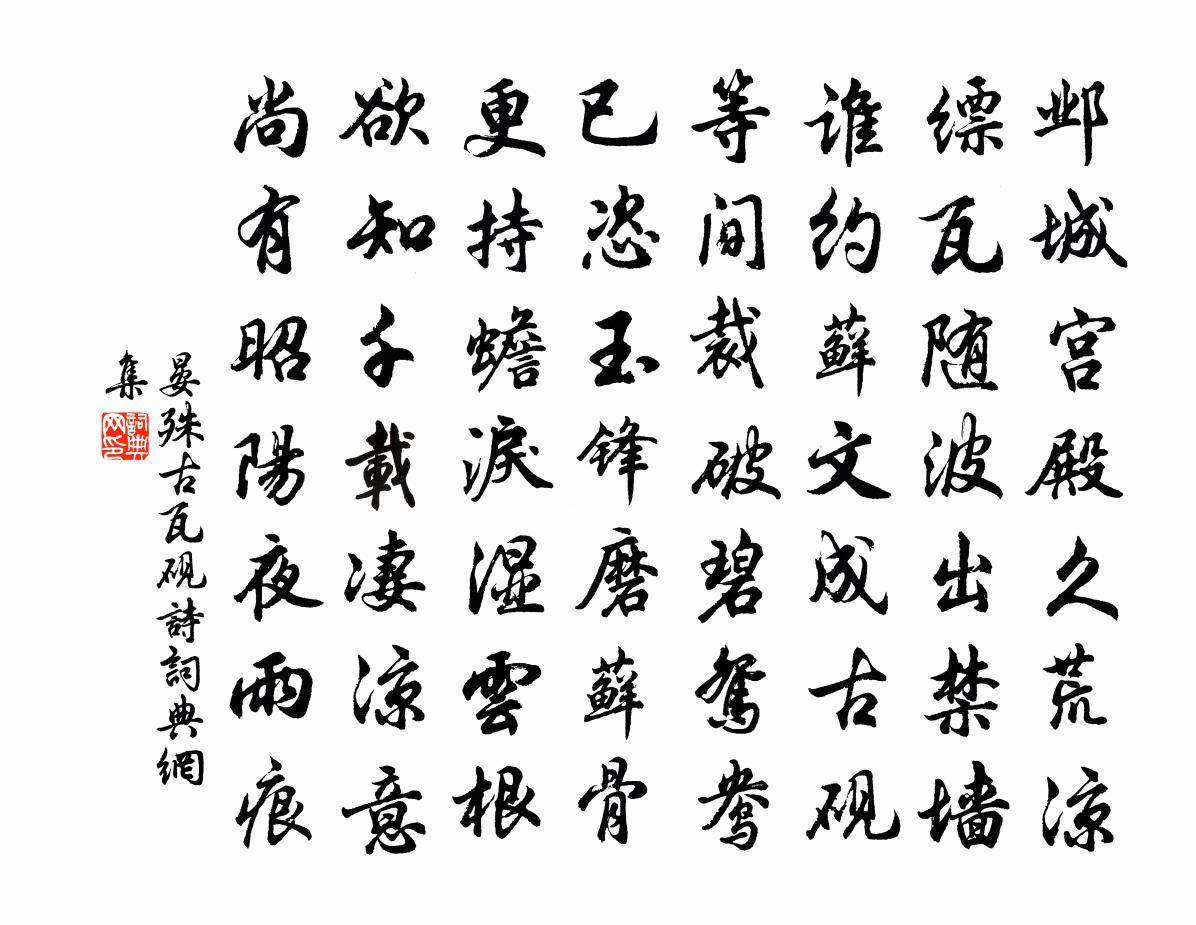 邺城宫殿久荒凉
缥瓦随波出禁墙
谁约蘚文成古砚
等间裁破碧鸳鸯
已恐玉锋磨蘚骨
更持蟾淚湿雲根
欲知千載凄凉意
尚有昭陽夜雨痕
晏殊古瓦砚詩詞典網
集
詞典
网印